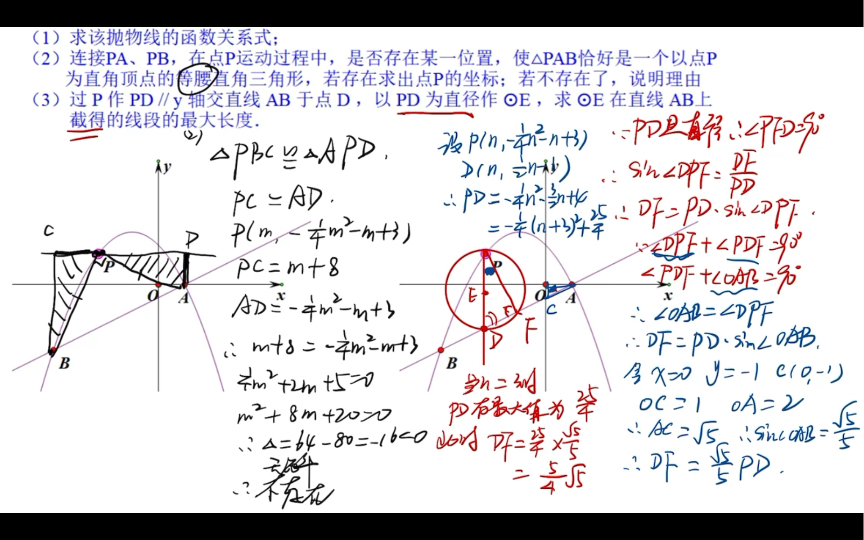 （1）求该抛物线的函数关系式；
（2）连接PA、PB，在点P运动过程中，是否存在某一位置，使△PAB恰好是一个以点P
为直角顶点的等腰直角三角形，若存在求出点P的坐标；若不存在了，说明理由
（3）过 P 作 PD // y 轴交直线 AB 于点 D ，以 PD 为直径作 ⊙E ，求 ⊙E 在直线 AB上
截得的线段的最大长度．
(2)
△PBC ≌ △APD.
PC = AD.
P(m, -1/4m²-m+3)
PC=m+8
AD=-1/4m²-m+3
∴ m+8=-1/4m²-m+3
1/4m²+2m+5=0
m²+8m+20=0
∴△=64-80=-16<0
∴不存在
C
P
D
y
O
A
x
B
设P(n,-1/4n²-n+3)
∴PD=-1/4n²-3/2n+4
=-1/4(n+3)²+25/4
y
P
E
O
A
x
C
D
F
B
PD有最大值为 25/4
此时 DF=25/4×√5/5
=5/4√5
∵PD是直径∴∠PFD=90°
∴ sin∠DPF=DF/PD
∴ DF=PD·sin∠DPF.
∵∠DPF+∠PDF=90°
∠PDF+∠OAB=90°
∴∠OAB=∠DPF
∴DF=PD·sin∠OAB.
令 x=0 y=-1 C(0,-1)
OC=1 OA=2
∴AC=√5 ∴sin∠OAB=√5/5
∴DF=√5/5 PD.